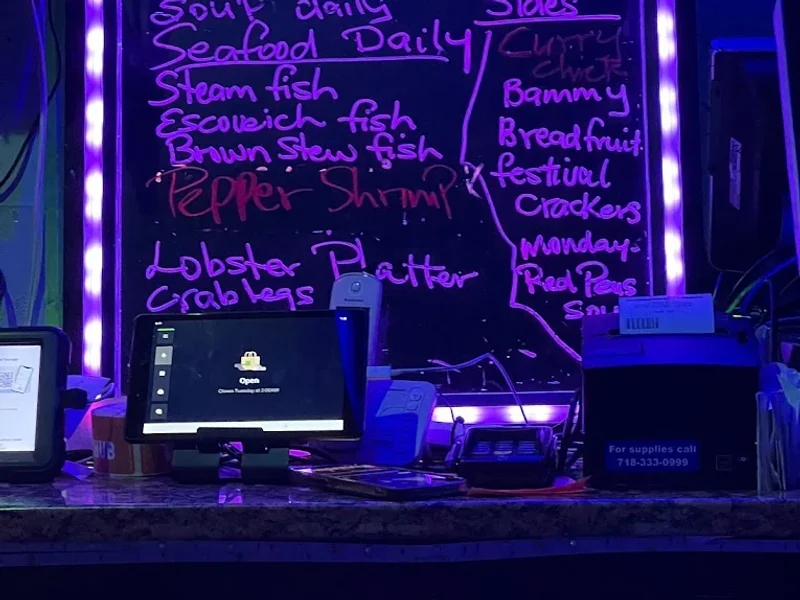 Soup daily
Seafood Daily
Steam fish
Escoveich fish
Brown Stew fish
Pepper Shrimp
Lobster Platter
Crab legs
Sides
Curry
Bammy
Breadfruit
festival
Crackers
Monday-
Red Peas
Open
For supplies call
718-333-0999